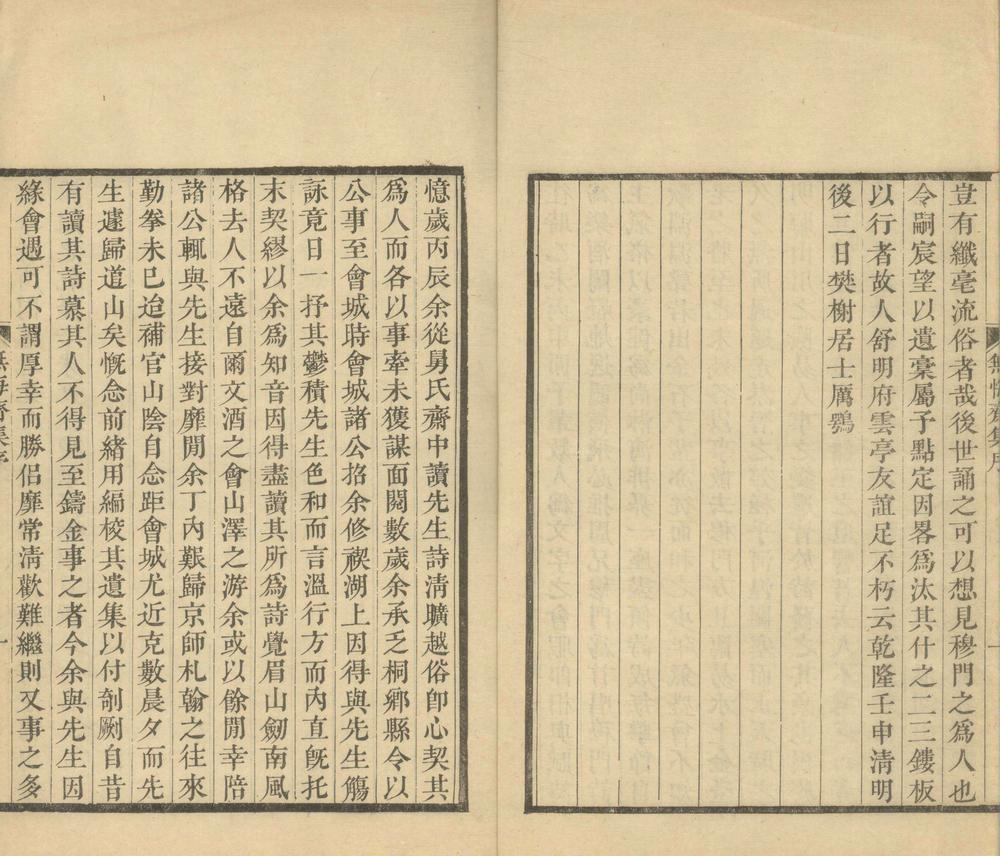 豈有纖毫流俗者哉後世誦之可以想見穆門之爲人也
令嗣宸望以遺稾屬予點定因畧爲汰其什之二三鏤板
以行者故人舒明府雲亭友誼足不朽云乾隆壬申清明
後二日樊榭居士厲鶚
憶歲丙辰余從舅氏齋中讀先生詩淸曠越俗卽心契其
爲人而各以事牽未獲謀面閱數歲余承乏桐鄉縣令以
公事至會城時會城諸公招余修禊湖上因得與先生觴
詠竟日一抒其鬱積先生色和而言溫行方而內直旣托
末契繆以余爲知音因得盡讀其所爲詩覺眉山劒南風
格去人不遠自爾文酒之會山澤之游余或以餘閒幸陪
諸公輒與先生接對靡閒余丁內艱歸京師札翰之往來
勤拳未已迨補官山陰自念距會城尤近克數晨夕而先
生遽歸道山矣慨念前緒用編校其遺集以付剞劂自昔
有讀其詩慕其人不得見至鑄金事之者今余與先生因
緣會遇可不謂厚幸而勝侶靡常淸歡難繼則又事之多
無悔齋集序
一